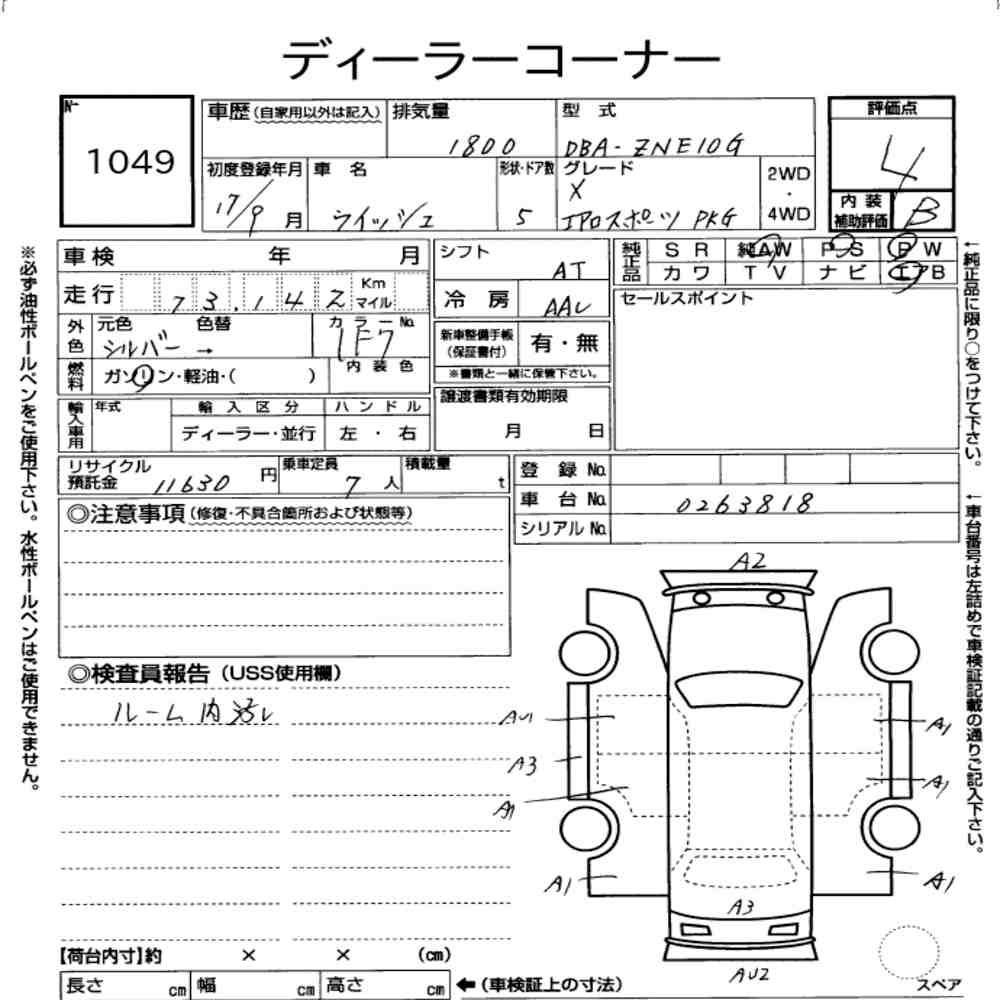 ディーラーコーナー
No.
1049
車歴(自家用以外は記入)
排気量
1800
型 式
DBA-ZNE10G
評価点
4
初度登録年月
17/9 月
車 名
ウイッシュ
形状・ドア数
5
グレード
X
エアロスポーツ PKG
2WD
・
4WD
内 装
補助評価
B
車検 年 月
シフト
AT
純正品
S R 純AW P S P W
カ ワ T V ナ ビ エアB
走行 73,142 Km マイル
冷 房
AAC
セールスポイント
外色
元色 色替
シルバー →
カ ラ ー No.
1F7
新車整備手帳
(保証書付)
有・無
※書類と一緒に保管下さい。
燃料
ガソリン・軽油・( )
内 装 色
譲渡書類有効期限
月 日
輸入車用
年式
輸 入 区 分
ディーラー・並行
ハ ン ド ル
左 ・ 右
リサイクル
預託金 11630 円
乗車定員
7 人
積載量
t
登 録 No.
車 台 No. 0263818
シリアル No.
◎注意事項(修復・不具合箇所および状態等)
◎検査員報告(USS使用欄)
ルーム内汚レ
A2
AU1
A3
A1
A1
A1
A1
A1
A3
AU2
スペア
【荷台内寸】約 × × (cm)
長さ cm 幅 cm 高さ cm
←(車検証上の寸法)
※必ず油性ボールペンをご使用下さい。水性ボールペンはご使用できません。
←純正品に限り○をつけて下さい。
←車台番号は左詰めで車検証記載の通りご記入下さい。